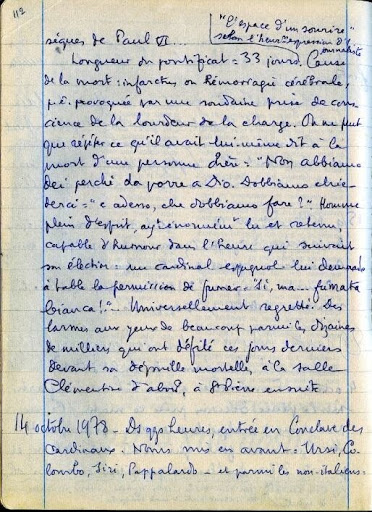 112
"L'espace d'un sourire"
selon l'heureuse expression d'1
journaliste
sèques de Paul VI
Longueur du pontificat = 33 jours. Cause
de la mort : infarctus ou hémorragie cérébrale,
p.ê. provoquée par une soudaine prise de cons-
cience de la lourdeur de la charge. On ne peut
que répéter ce qu'il avait lui-même dit à la
mort d'une personne chère = "Non abbiamo
dei perché da porre a Dio. Dobbiamo chie-
derci = "e adesso, che dobbiamo fare?" Homme
plein d'esprit, lu et retenu,
capable d'humour dans l'heure qui suivait
son élection : un cardinal espagnol lui demanda
à table la permission de fumer - Sì, ma... fumata
bianca!... Universellement regretté. Des
larmes aux yeux de beaucoup parmi les dizaines
de milliers qui ont défilé ces jours derniers
devant sa dépouille mortelle, à la salle
Clémentine d'abord, à St Pierre ensuite
14 octobre 1978 - Ds qqs heures, entrée en Conclave des
Cardinaux. Noms mis en avant = Ursi, Co-
lombo, Siri, Pappalardo - et parmi les non-italiens =